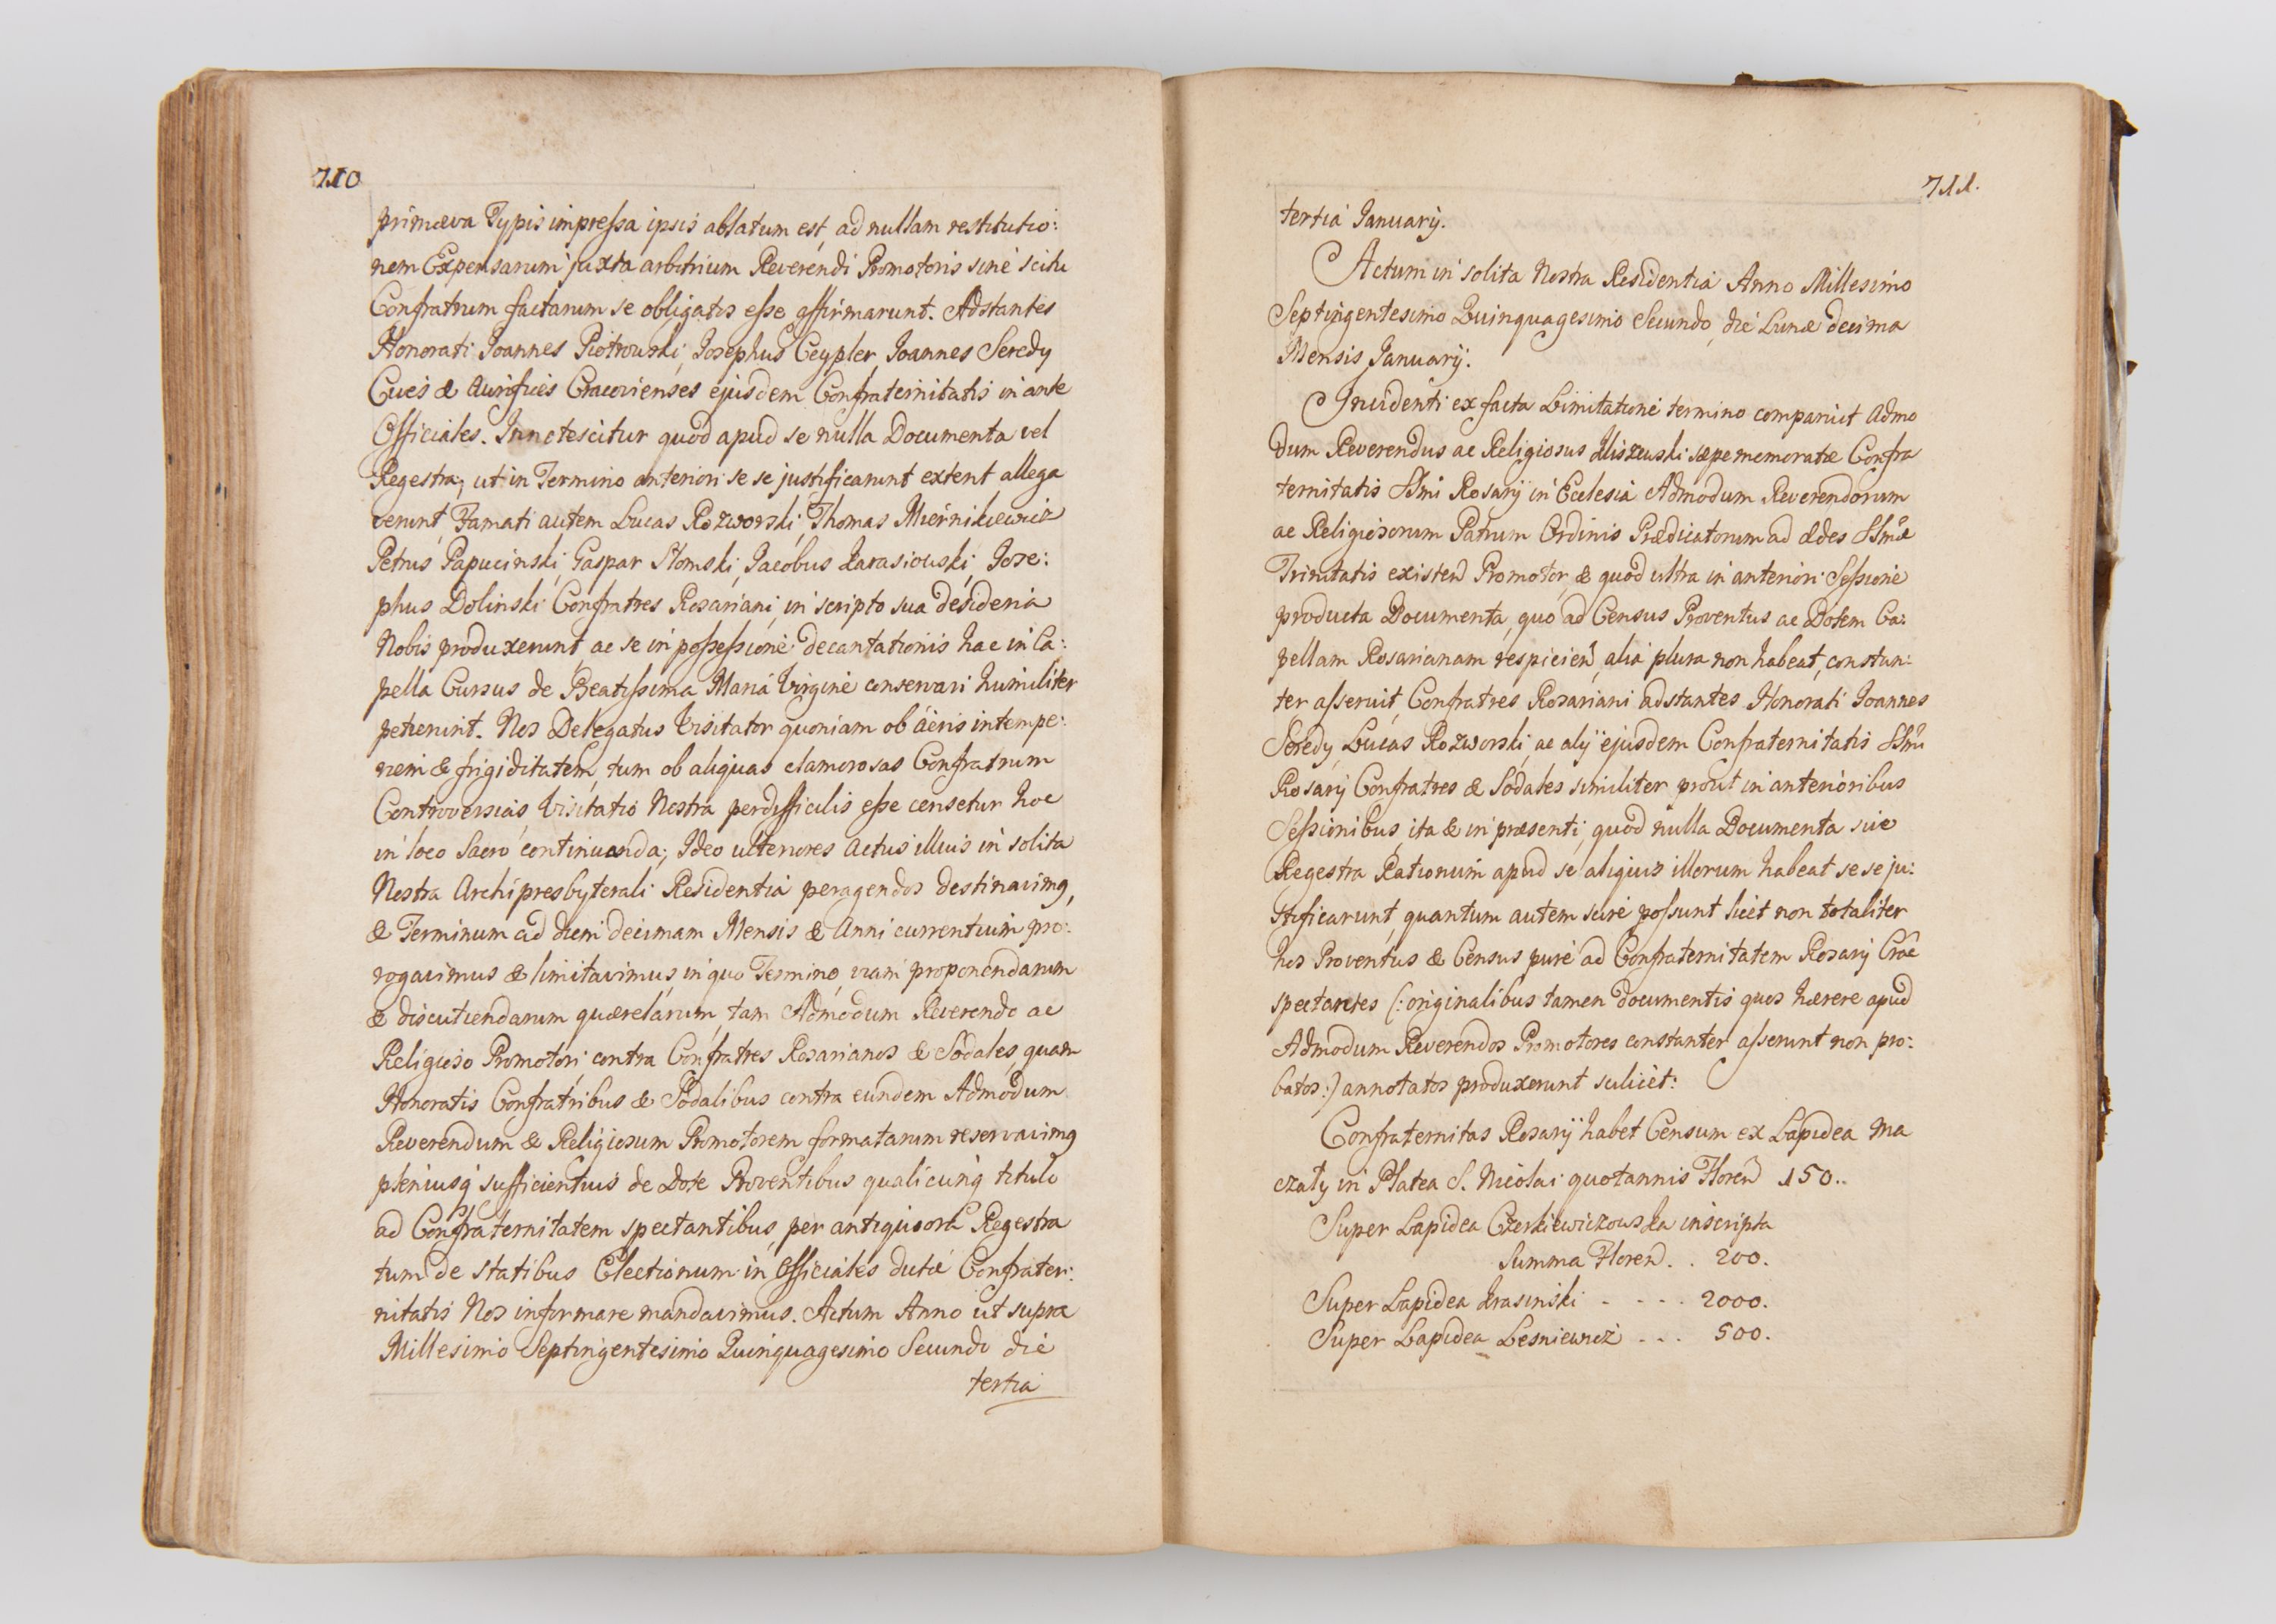 710
primæva Typis impressa ipsis ablatum est, ad nullam restitutio:
nem Expensarum juxta arbitrium Reverendi Promotoris sine scitu
Confratrum factarum se obligatos esse affirmarunt. Adstantes
Honorati Joannes Piotrowski, Josephus Ceypler, Joannes Seredy
Cives & Aurifices Cracovienses ejusdem Confraternitatis in ante
Officiales. Innotescitur quod apud se nulla Documenta vel
Regestra, ut in Termino anteriori se se justificarunt extent allega
verunt, Famati autem Lucas Rozworski, Thomas Miernikiewicz
Petrus Papucinski, Gaspar Słomski, Jacobus Karasiowski, Jose:
phus Dolinski Confratres Rosariani, in scripto sua desideria
Nobis produxerunt, ac se in possessione decantationis hac in Ca:
pella Cursus de Beatissima Maria Virgine conservari humiliter
petierunt. Nos Delegatus Visitator quoniam ob äeris intempe:
riem & frigiditatem, tum ob aliquas clamorosas Confratrum
Controversias, Visitatio Nostra perdifficilis esse censetur hoc
in loco Sacro continuanda; Ideo ulteriores Actus illius in solita
Nostra Archipresbyterali Residentia peragendos destinavimq,
& Terminum ad diem decimam Mensis & Anni currentium pro:
rogavimus & limitavimus, in quo Termino, viam proponendarum
& discutiendarum quærelarum, tam Admodum Reverendo ac
Religioso Promotori contra Confratres Rosarianos & Sodales, quam
Honoratis Confratribus & Sodalibus contra eundem Admodum
Reverendum & Religiosum Promotorem formatarum reservavimq
pleniusq sufficientius de Dote Proventibus qualicunq titulo
ad Confraternitatem spectantibus, per antiquiora Regestra
tum de statibus Electionum in Officiales dictæ Confrater:
nitatis Nos informare mandavimus. Actum Anno ut supra
Millesimo Septingentesimo Quinquagesimo Secundo die
tertia
711.
tertia Januarij.
Actum in solita Nostra Residentia Anno Millesimo
Septingentesimo Quinquagesimo Secundo, die Lunæ decima
Mensis Januarij.
Incidenti ex facta Limitatione termino comparuit Admo
dum Reverendus ac Religiosus Kliszewski sæpememoratæ Confra
ternitatis SSmi Rosarij in Ecclesia Admodum Reverendorum
ac Religiosorum Patrum Ordinis Prædicatorum ad Ædes SSmæ
Trinitatis existen Promotor, & quod ultra in anteriori Sessione
producta Documenta, quo ad Census Proventus ac Dotem Ca:
pellam Rosarianam respicien, alia plura non habeat, constan:
ter asseruit, Confratres Rosariani adstantes Honorati Joannes
Seredy, Lucas Rozworski, ac alij ejusdem Confraternitatis SSmi
Rosarij Confratres & Sodales similiter prout in anterioribus
Sessionibus, ita & in præsenti, quod nulla Documenta sive
Regestra Rationum apud se aliquis illorum habeat se se ju:
stificarunt, quantum autem scire possunt licet non totaliter
hos Proventus & Census pure ad Confraternitatem Rosarij Cræ
spectantes (: originalibus tamen documentis quos hærere apud
Admodum Reverendos Promotores constanter asserunt non pro:
batos :) annotatos produxerunt scilicet:
Confraternitas Rosarij habet Censum ex Lapidea Ma
czały in Platea S. Nicolai quotannis Floren 150..
Super Lapidea Czerkiewiczowska inscripta
Summa Floren. . 200.
Super Lapidea Krasinski - - - - 2000.
Super Lapidea Lesniewicz - - - 500.